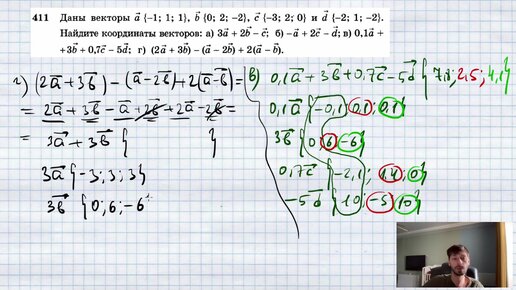 411 Даны векторы a⃗ {−1; 1; 1}, b⃗ {0; 2; −2}, c⃗ {−3; 2; 0} и d⃗ {−2; 1; −2}.
Найдите координаты векторов: а) 3a⃗ + 2b⃗ − c⃗; б) −a⃗ + 2c⃗ − d⃗; в) 0,1a⃗ +
+ 3b⃗ + 0,7c⃗ − 5d⃗; г) (2a⃗ + 3b⃗) − (a⃗ − 2b⃗) + 2(a⃗ − b⃗).
г) (2a⃗ + 3b⃗) − (a⃗ − 2b⃗) + 2(a⃗ − b⃗) =
= 2a⃗ + 3b⃗ − a⃗ + 2b⃗ + 2a⃗ − 2b⃗ =
= 3a⃗ + 3b⃗ { }
3a⃗ {−3; 3; 3}
3b⃗ {0; 6; −6
в) 0,1a⃗ + 3b⃗ + 0,7c⃗ − 5d⃗ {7,8; 2,5; 4,1}
0,1a⃗ {−0,1; 0,1; 0,1}
3b⃗ {0; 6; −6}
0,7c⃗ {−2,1; 1,4; 0}
−5d⃗ {10; −5; 10}